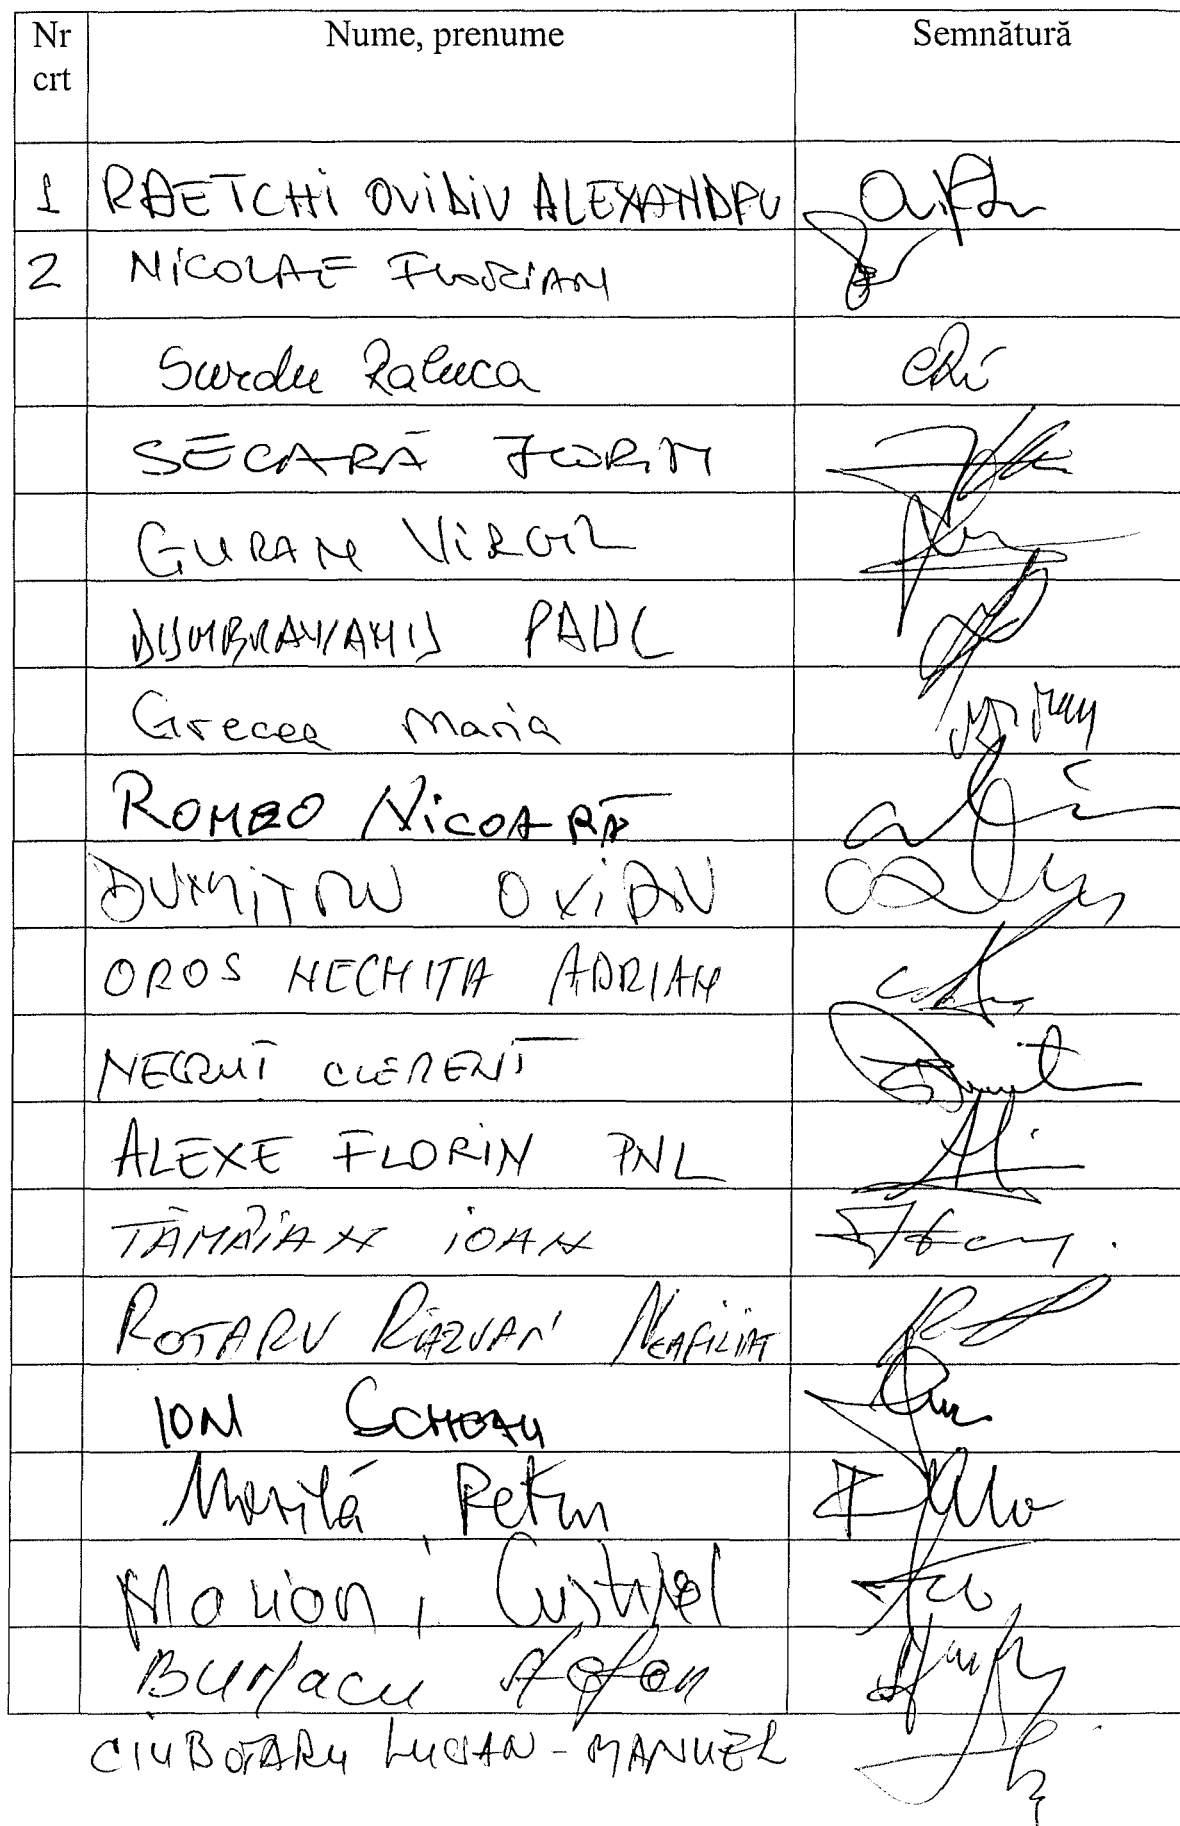 Nr crt Nume, prenume Semnătură
1 RAETCHI OVIDIU ALEXANDRU
2 NICOLAE FLORIAN
Surdu Raluca
SECARĂ FLORIN
GURAN VIRGIL
DUMBRAVANU PAUL
Grecea Maria
ROMEO NICOARĂ
DUMITRU OVIDIU
OROS NECHITA ADRIAN
NEGRUT CLEMENT
ALEXE FLORIN PNL
TĂMÂIAN IOAN
ROTARU RĂZVAN NEAFILIAT
ION SCHEAU
Movilă Petru
Marian, Cristinel
Burlacu Ștefan
CIUBOTARU LUCIAN-MANUEL